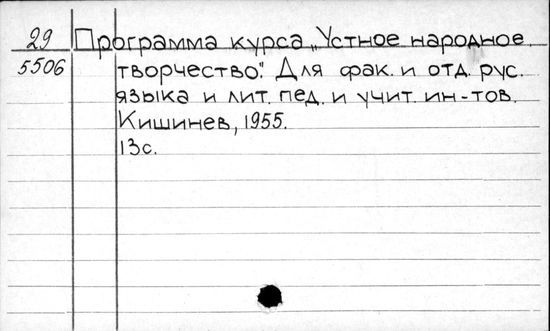 29 Программа курса „Устное народное
5506 творчество". Для фак. и отд. рус.
языка и лит. пед. и учит. ин-тов.
Кишинев, 1955.
13с.